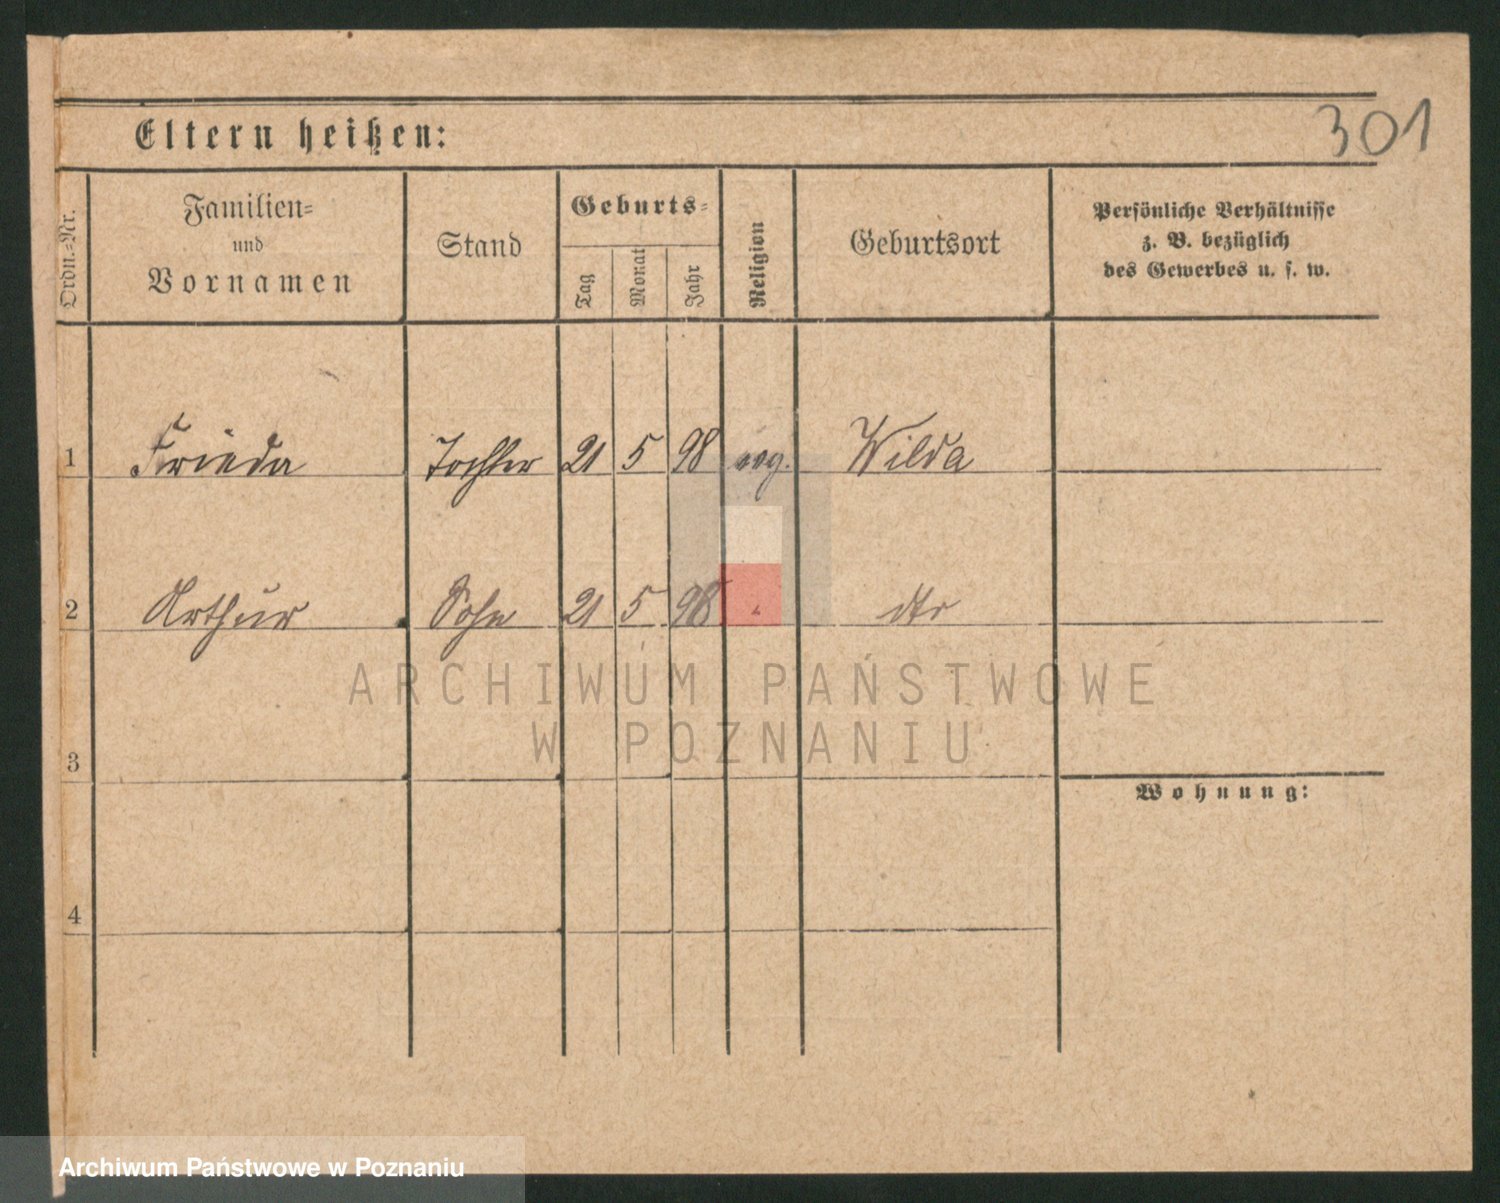 301
Eltern heißen:
Ordn.-Nr.
Familien-
und
Vornamen
Stand
Geburts-
Tag
Monat
Jahr
Religion
Geburtsort
Persönliche Verhältnisse
z. B. bezüglich
des Gewerbes u. s. w.
1 Frieda Tochter 21 5 98 evg. Wilda
2 Arthur Sohn 21 5 98 " dto
ARCHIWUM PAŃSTWOWE
W POZNANIU
3
Wohnung:
4
Archiwum Państwowe w Poznaniu